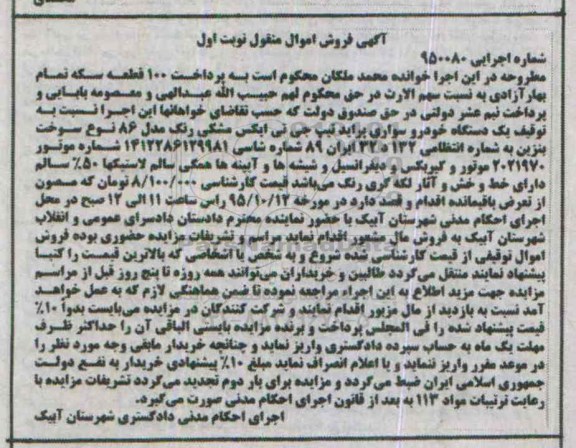 آگهی فروش اموال منقول نوبت اول
شماره اجرایی ۹۵۰۰۸۰
مطروحه در این اجرا خوانده محمد ملکان محکوم است به پرداخت ۱۰۰ قطعه سکه تمام
بهار آزادی به نسبت سهم الارث در حق محکوم لهم حبیب الله عبدالهی و معصومه بابایی و
پرداخت نیم عشر دولتی در حق صندوق دولت که حسب تقاضای خواهانها این اجرا نسبت به
توقیف یک دستگاه خودرو سواری پراید تیپ جی تی ایکس مشکی رنگ مدل ۸۶ نوع سوخت
بنزین به شماره انتظامی ۱۳۲ ه ۳۲ ایران ۸۹ شماره شاسی ۱۴۱۲۲۸۶۱۲۹۹۸۱ شماره موتور
۲۰۲۱۹۷۰ موتور و گیربکس و دیفرانسیل و شیشه ها و آیینه ها همگی سالم لاستیکها ۵۰٪ سالم
دارای خط و خش و آثار لکه گیری رنگ می‌باشد قیمت کارشناسی ۸/۱۰۰/۰۰۰ تومان که مصون
از تعرض باقیمانده اقدام و قصد دارد در مورخه ۹۵/۱۰/۱۲ راس ساعت ۱۱ الی ۱۲ صبح در محل
اجرای احکام مدنی شهرستان آبیک با حضور نماینده محترم دادستان دادسرای عمومی و انقلاب
شهرستان آبیک به فروش مال مزبور اقدام نماید مراسم و تشریفات مزایده حضوری بوده فروش
اموال توقیفی از قیمت کارشناسی شده شروع و به شخص یا اشخاصی که بالاترین قیمت را کتبا
پیشنهاد نمایند منتقل می‌گردد طالبین و خریداران می‌توانند همه روزه تا پنج روز قبل از مراسم
مزایده جهت مزید اطلاع به این اجراء مراجعه نموده تا ضمن هماهنگی لازم که به عمل خواهد
آمد نسبت به بازدید از مال مزبور اقدام نمایند و شرکت کنندگان در مزایده می‌بایست بدواً ۱۰٪
قیمت پیشنهاد شده را فی المجلس پرداخت و برنده مزایده بایستی الباقی آن را حداکثر ظرف
مهلت یک ماه به حساب سپرده دادگستری واریز نماید و چنانچه خریدار مابقی وجه مورد نظر را
در موعد مقرر واریز ننماید و یا اعلام انصراف نماید مبلغ ۱۰٪ پیشنهادی خریدار به نفع دولت
جمهوری اسلامی ایران ضبط می‌گردد و مزایده برای بار دوم تجدید می‌گردد تشریفات مزایده با
رعایت ترتیبات مواد ۱۱۳ به بعد از قانون اجرای احکام مدنی صورت می‌گیرد.
اجرای احکام مدنی دادگستری شهرستان آبیک